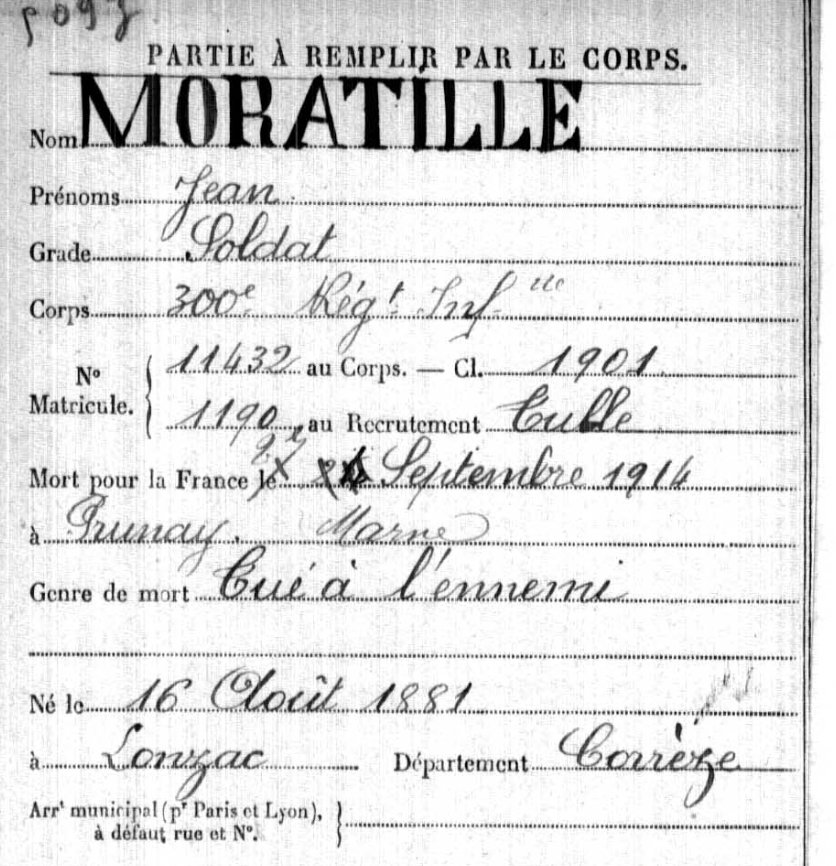 PARTIE À REMPLIR PAR LE CORPS.
Nom MORATILLE
Prénoms Jean
Grade Soldat
Corps 300e Régt Infrie
No Matricule. 11432 au Corps. — Cl. 1901
1190 au Recrutement Tulle
Mort pour la France le Septembre 1914
à Prunay. Marne
Genre de mort Tué à l'ennemi
Né le 16 Août 1881
à Lonzac Département Corrèze
Arrt municipal (pr Paris et Lyon),
à défaut rue et No.